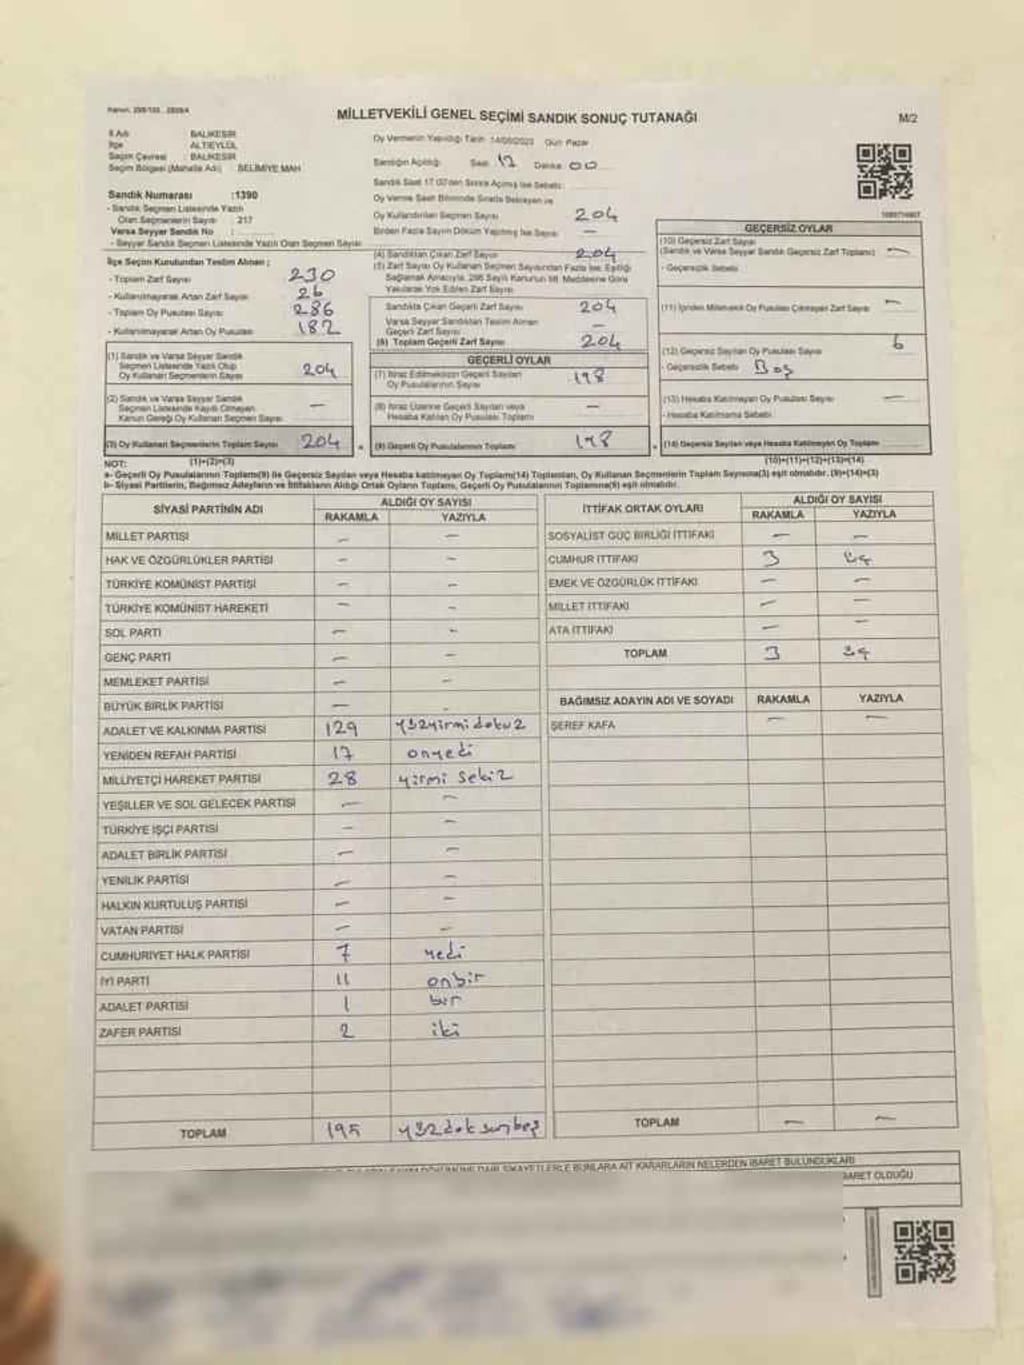 MİLLETVEKİLİ GENEL SEÇİMİ SANDIK SONUÇ TUTANAĞI
M/2
İl Adı BALIKESİR
İlçe ALTIEYLÜL
Seçim Çevresi BALIKESİR
Seçim Bölgesi (Mahalle Adı) SELİMİYE MAH
Sandık Numarası :1390
- Sandık Seçmen Listesinde Yazılı
Olan Seçmenlerin Sayısı : 217
Varsa Seyyar Sandık No :
- Seyyar Sandık Seçmen Listesinde Yazılı Olan Seçmen Sayısı
İlçe Seçim Kurulundan Teslim Alınan ;
- Toplam Zarf Sayısı 230
- Kullanılmayarak Artan Zarf Sayısı 26
- Toplam Oy Pusulası Sayısı 286
- Kullanılmayarak Artan Oy Pusulası 182
Oy Vermenin Yapıldığı Tarih 14/05/2023 Gün Pazar
Sandığın Açıldığı Saat 17 Dakika 00
Sandık Saat 17.00'den Sonra Açılmış İse Sebebi:
Oy Verme Saati Bitiminde Sırada Bekleyen ve
Oy Kullandırılan Seçmen Sayısı 204
Birden Fazla Sayım Döküm Yapılmış İse Sayısı —
(4) Sandıktan Çıkan Zarf Sayısı 204
(5) Zarf Sayısı Oy Kullanan Seçmen Sayısından Fazla İse, Eşitliği
Sağlamak Amacıyla, 298 Sayılı Kanunun 98. Maddesine Göre
Yakılarak Yok Edilen Zarf Sayısı
Sandıkta Çıkan Geçerli Zarf Sayısı 204
Varsa Seyyar Sandıktan Teslim Alınan
Geçerli Zarf Sayısı —
(6) Toplam Geçerli Zarf Sayısı 204
(1) Sandık ve Varsa Seyyar Sandık
Seçmen Listesinde Yazılı Olup
Oy Kullanan Seçmenlerin Sayısı 204
(2) Sandık ve Varsa Seyyar Sandık
Seçmen Listesinde Kayıtlı Olmayan
Kanun Gereği Oy Kullanan Seçmen Sayısı —
(3) Oy Kullanan Seçmenlerin Toplam Sayısı 204
(1)+(2)=(3)
GEÇERLİ OYLAR
(7) İtiraz Edilmeksizin Geçerli Sayılan
Oy Pusulalarının Sayısı 198
(8) İtiraz Üzerine Geçerli Sayılan veya
Hesaba Katılan Oy Pusulası Toplamı —
(9) Geçerli Oy Pusulalarının Toplamı 198
GEÇERSİZ OYLAR
(10) Geçersiz Zarf Sayısı
(Sandık ve Varsa Seyyar Sandık Geçersiz Zarf Toplamı) —
- Geçersizlik Sebebi
(11) İçinden Milletvekili Oy Pusulası Çıkmayan Zarf Sayısı —
(12) Geçersiz Sayılan Oy Pusulası Sayısı 6
- Geçersizlik Sebebi Boş
(13) Hesaba Katılmayan Oy Pusulası Sayısı —
- Hesaba Katılmama Sebebi
(14) Geçersiz Sayılan veya Hesaba Katılmayan Oy Toplamı
(10)+(11)+(12)+(13)=(14)
NOT:
a- Geçerli Oy Pusulalarının Toplamı(9) ile Geçersiz Sayılan veya Hesaba katılmayan Oy Toplamı(14) Toplamları, Oy Kullanan Seçmenlerin Toplam Sayısına(3) eşit olmalıdır. (9)+(14)=(3)
b- Siyasi Partilerin, Bağımsız Adayların ve İttifakların Aldığı Ortak Oyların Toplamı, Geçerli Oy Pusulalarının Toplamına(9) eşit olmalıdır.
SİYASİ PARTİNİN ADI ALDIĞI OY SAYISI
RAKAMLA YAZIYLA
MİLLET PARTİSİ — —
HAK VE ÖZGÜRLÜKLER PARTİSİ — —
TÜRKİYE KOMÜNİST PARTİSİ — —
TÜRKİYE KOMÜNİST HAREKETİ — —
SOL PARTİ — —
GENÇ PARTİ — —
MEMLEKET PARTİSİ — —
BÜYÜK BİRLİK PARTİSİ — —
ADALET VE KALKINMA PARTİSİ 129 yüzyirmidokuz
YENİDEN REFAH PARTİSİ 17 onyedi
MİLLİYETÇİ HAREKET PARTİSİ 28 yirmi sekiz
YEŞİLLER VE SOL GELECEK PARTİSİ — —
TÜRKİYE İŞÇİ PARTİSİ — —
ADALET BİRLİK PARTİSİ — —
YENİLİK PARTİSİ — —
HALKIN KURTULUŞ PARTİSİ — —
VATAN PARTİSİ — —
CUMHURİYET HALK PARTİSİ 7 yedi
İYİ PARTİ 11 onbir
ADALET PARTİSİ 1 bir
ZAFER PARTİSİ 2 iki
TOPLAM 195 yüzdoksanbeş
İTTİFAK ORTAK OYLARI ALDIĞI OY SAYISI
RAKAMLA YAZIYLA
SOSYALİST GÜÇ BİRLİĞİ İTTİFAKI — —
CUMHUR İTTİFAKI 3 üç
EMEK VE ÖZGÜRLÜK İTTİFAKI — —
MİLLET İTTİFAKI — —
ATA İTTİFAKI — —
TOPLAM 3 üç
BAĞIMSIZ ADAYIN ADI VE SOYADI RAKAMLA YAZIYLA
ŞEREF KAFA — —
TOPLAM — —
ŞİKAYETLERLE BUNLARA AİT KARARLARIN NELERDEN İBARET BULUNDUKLARI
İBARET OLDUĞU